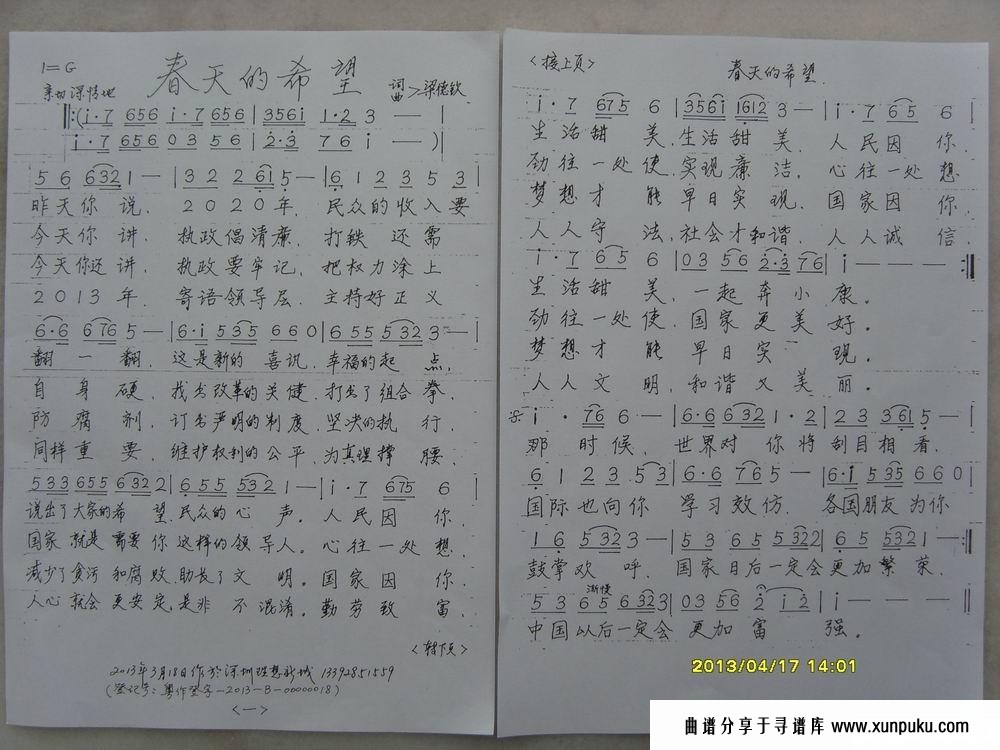 1=G
春天的希望
亲切 深情地
词曲>梁德钦
‖:(i·7 656 i·7 656 | 3561 1·2 3 — |
i·7 656 03 56 | 2·3 76 i — )|
5 6 6321 — | 3 2 2 6i 5 — | 6 1 2 3 5 3 |
昨天你说， 2020年， 民众的收入要
今天你讲， 执政倡清廉， 打铁还需
今天你还讲， 执政要牢记， 把权力涂上
2013年， 寄语领导层， 主持好正义
6·6 676 5 — | 6·i 535 6 6 0 | 6 55 5 532 3 — |
翻一翻， 这是新的喜讯，幸福的起点，
自身硬， 找出改革的关健，打出了组合拳，
防腐剂， 订出严明的制度，坚决的执行，
同样重要， 维护权利的公平，为真理撑腰，
533 655 6322 | 6 55 5 532 1 — | i·7 675 6 |
说出了大家的希望，民众的心声。人民因你，
国家就是需要你这样的领导人。心往一处想，
减少了贪污和腐败，助长了文明。国家因你，
人心就会更安定，是非不混淆。勤劳致富，
<转下页>
2013年3月18日作於深圳理想新城 13392851559
(登记号：粤作登字-2013-B-00000018)
<一>
<接上页>
春天的希望
i·7 675 6 | 3561 1612 3 — | i·7 65 6 |
生活甜美，生活甜美，人民因你，
劲往一处使，实现廉洁，心往一处想
梦想才能早日实现，国家因你，
人人守法，社会才和谐，人人诚信，
i·7 65 6 | 03 56 2·3 76 | i — — — :‖
生活甜美，一起奔小康。
劲往一处使，国家更美好。
梦想才能早日实现。
人人文明，和谐又美丽。
i · 76 6 — | 6·6 6321·2 | 2 3 3 61 5 — |
那时候，世界对你将刮目相看，
6 1 2 3 53 | 6·6 765 — | 6·i 535 6 6 0 |
国际也向你学习效仿，各国朋友为你
1 6 5 323 — | 5 3 6 5 5 322 | 6 5 5321 — :‖
鼓掌欢呼，国家日后一定会更加繁荣，
渐慢
5 3 6 5 6 323 | 03 56 2 i 2 | i — — — ‖
中国以后一定会更加富强。
2013/04/17 14:01
曲谱分享于寻谱库 www.xunpuku.com